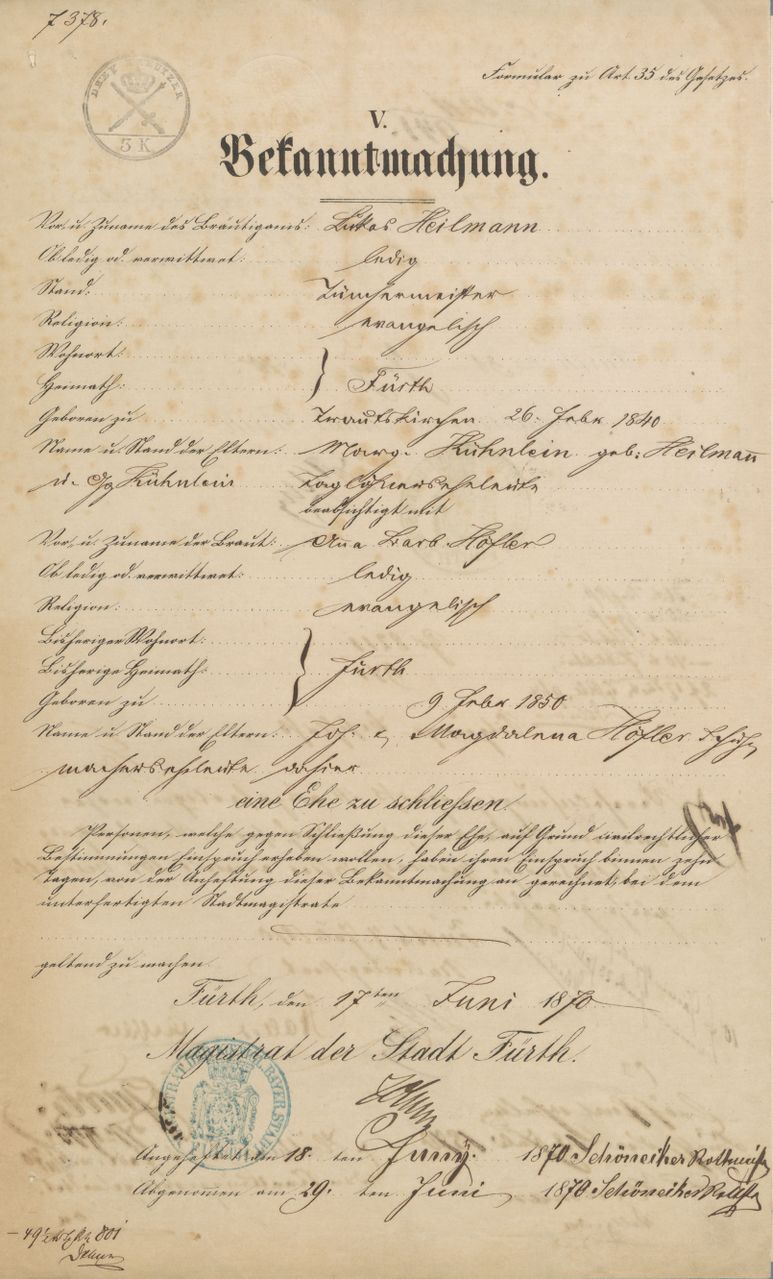 7378.
DREY KREUTZER
3 K
Formular zu Art. 35 des Gesetzes.
V.
Bekanntmachung.
Vor- u. Zuname des Bräutigams: Lukas Heilmann
Ob ledig od. verwittwet: ledig
Stand: Tünchermeister
Religion: evangelisch
Wohnort:
Heimath: Fürth
Geboren zu Trautskirchen 26. Febr 1840
Name u. Stand der Eltern: Marg. Kühnlein geb: Heilmann
u. Gg Kühnlein Taglöhnerseheleute
beabsichtigt mit
Vor- u. Zuname der Braut: Anna Barb Höfler
Ob ledig od. verwittwet: ledig
Religion: evangelisch
Bisheriger Wohnort:
Bisherige Heimath: Fürth
Geboren zu 9. Febr 1850
Name u. Stand der Eltern: Joh. & Magdalena Höfler Schuh
macherseheleute dahier
eine Ehe zu schliessen.
Personen, welche gegen Schließung dieser Ehe, auf Grund civilrechtlicher
Bestimmungen Einspruch erheben wollen, haben ihren Einspruch binnen zehn
Tagen, von der Anheftung dieser Bekanntmachung an gerechnet, bei dem
unterfertigten Stadtmagistrate
geltend zu machen.
Fürth, den 17ten Juni 1870
Magistrat der Stadt Fürth.
Angeheftet am 18. ten Juny. 1870 Schöneiker Rottmeister
Abgenommen am 29. ten Juni 1870 Schöneiker